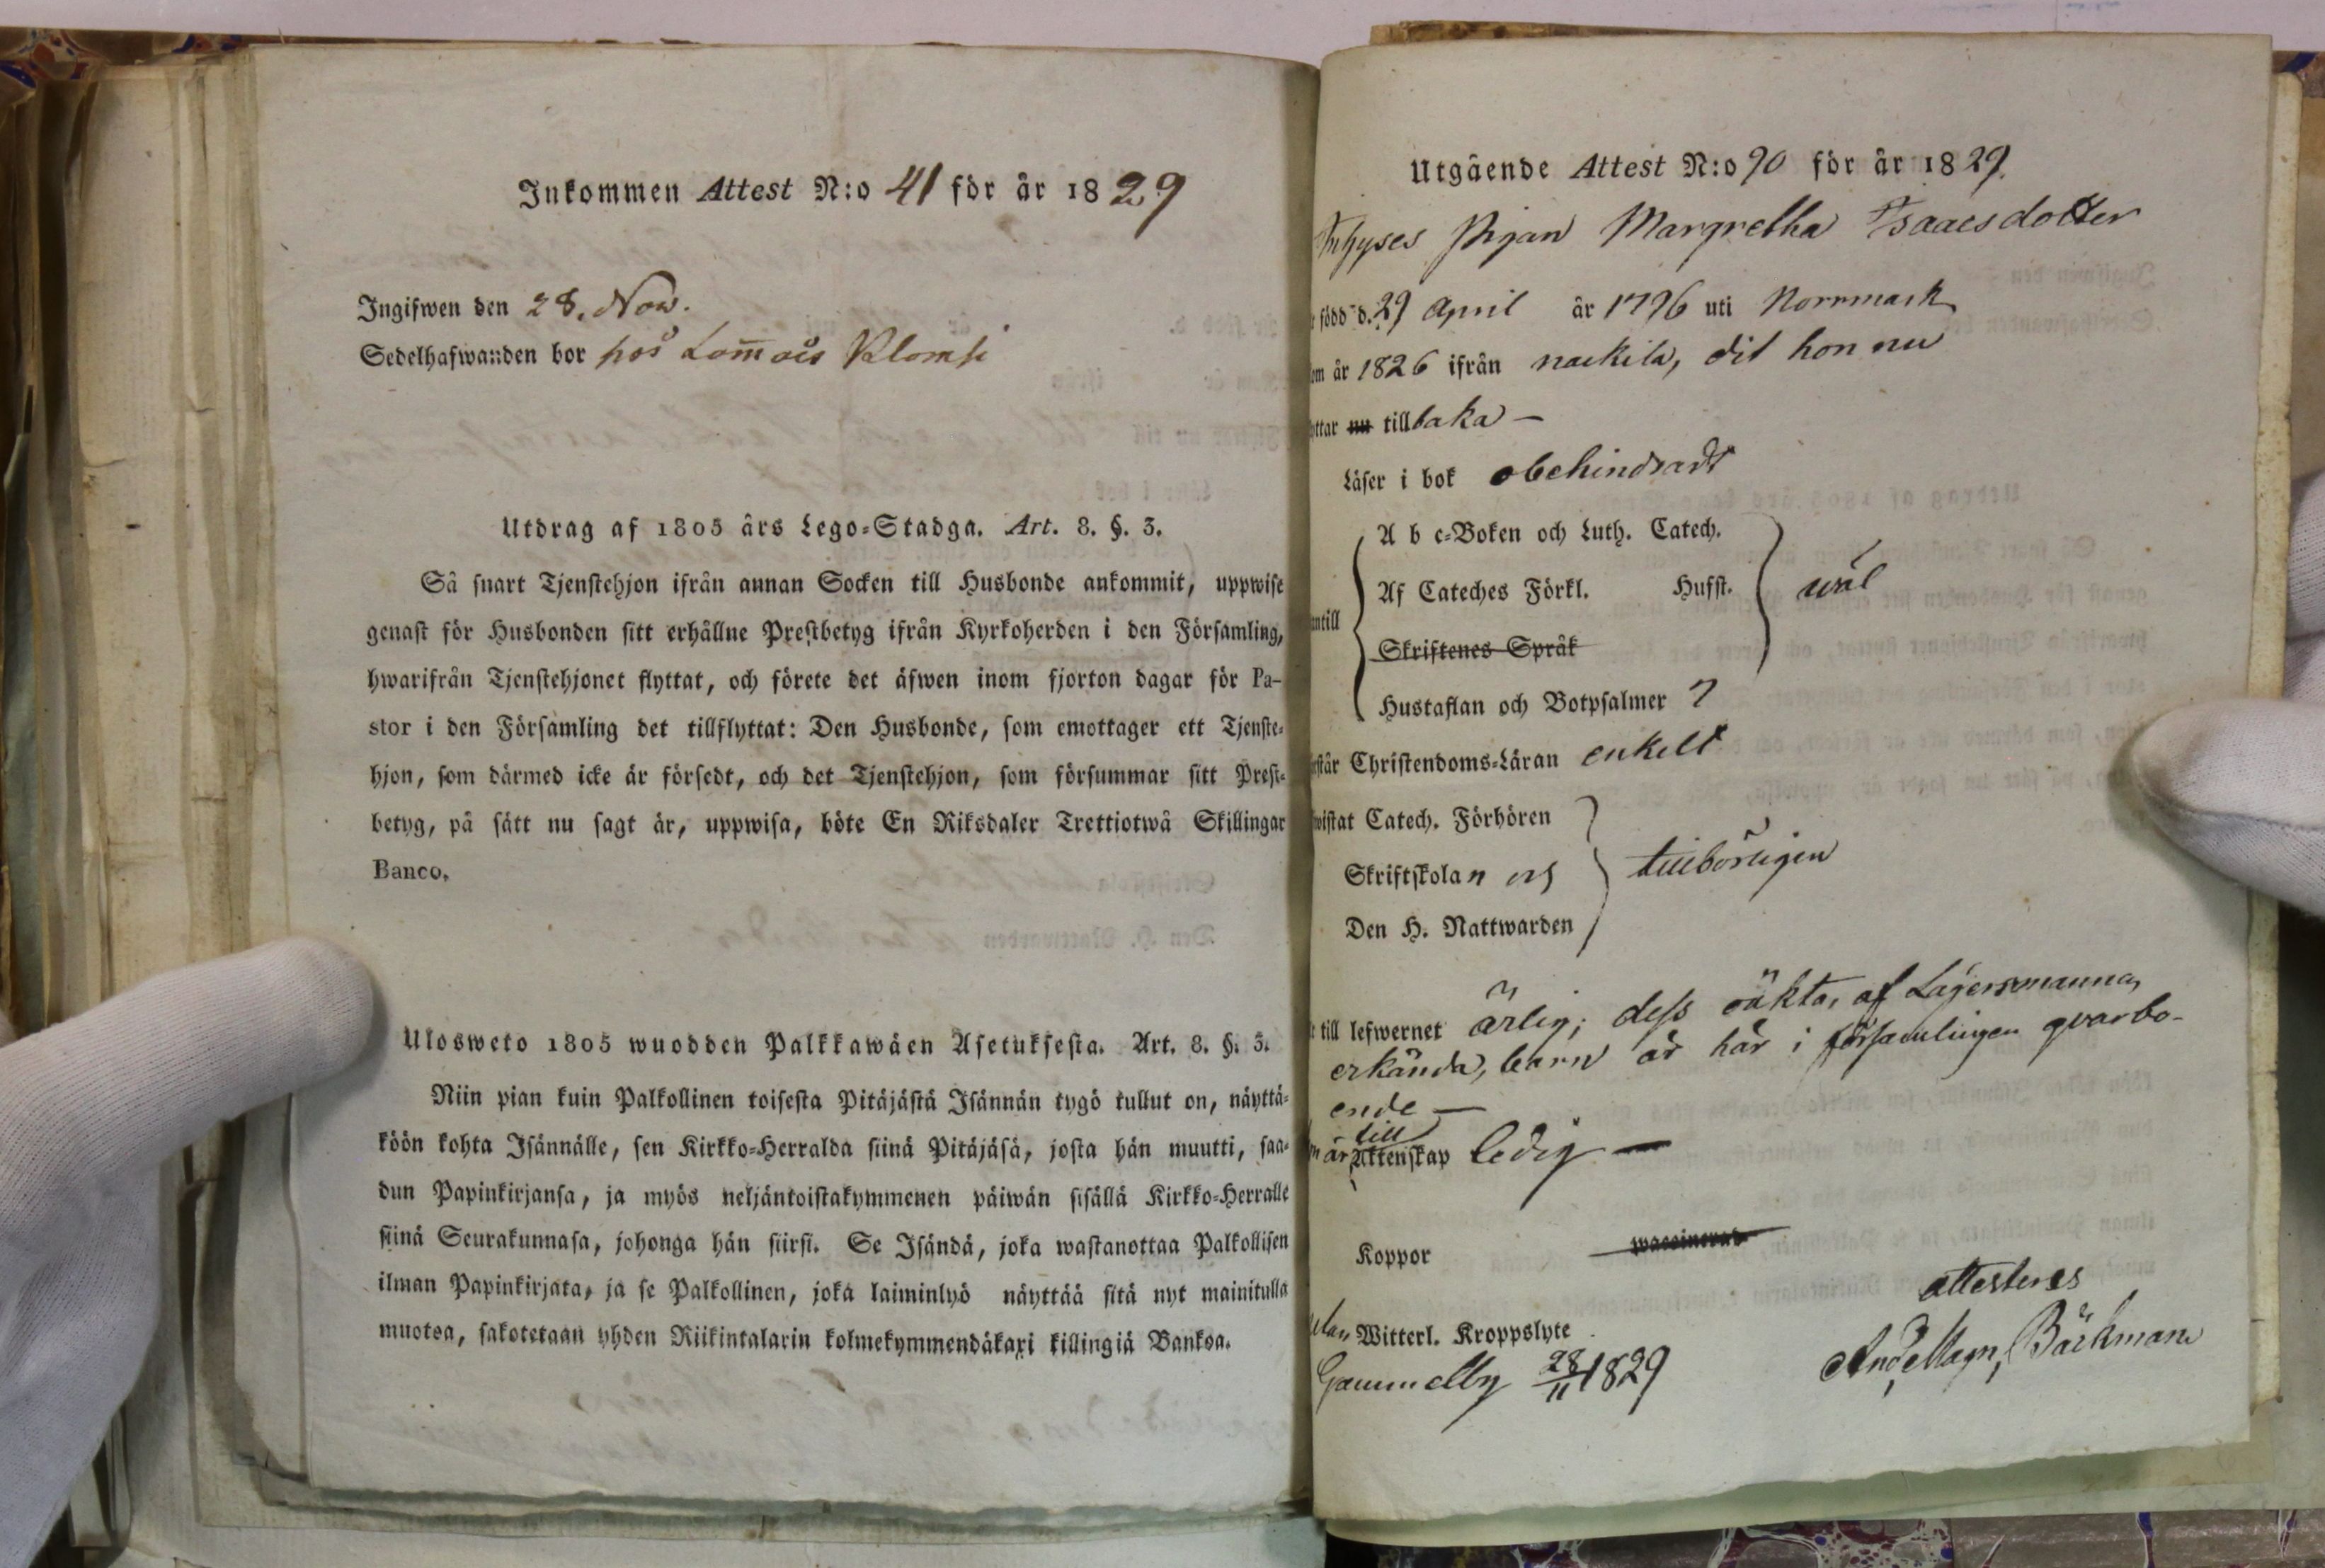 Inkommen Attest N:o 41 för år 1829
Ingifwen den 28. Nov.
Sedelhafwanden bor hos
Utdrag af 1805 års Lego-Stadga. Art. 8. §. 3.
Så snart Tjenstehjon ifrån annan Socken till Husbonde ankommit, uppwise
genast för Husbonden sitt erhållne Prestbetyg ifrån Kyrkoherden i den Församling,
hwarifrån Tjenstehjonet flyttat, och förete det äfwen inom fjorton dagar för Pa-
stor i den Församling det tillflyttat: Den Husbonde, som emottager ett Tjenste-
hjon, som därmed icke är försedt, och det Tjenstehjon, som försummar sitt Prest-
betyg, på sätt nu sagt är, uppwisa, böte En Riksdaler Trettiotwå Skillingar
Banco.
Ulosweto 1805 wuodden Palkkawäen Asetuksesta. Art. 8. §. 3.
Niin pian kuin Palkollinen toisesta Pitäjästä Isännän tygö tullut on, näyttä-
köön kohta Isännälle, sen Kirkko-Herralda siinä Pitäjäsä, josta hän muutti, saa-
dun Papinkirjansa, ja myös neljäntoistakymmenen päiwän sisällä Kirkko-Herralle
siinä Seurakunnasa, johonga hän siirsi. Se Isändä, joka wastanottaa Palkollisen
ilman Papinkirjata, ja se Palkollinen, joka laiminlyö näyttää sitä nyt mainitulla
muotoa, sakotetaan yhden Riikintalarin kolmekymmendäkaxi killingiä Bankoa.
Utgående Attest N:o 90 för år 1829.
Inhyses Pigan Margretha Isaacsdotter
född d. 29 April år 1796 uti Norrmark
om år 1826 ifrån nackila, dit hon nu
ttar nu tillbaka —
Läser i bok obehindradt
A b c-Boken och Luth. Catech.
Af Cateches Förkl. Husst. wäl
ntill
Skriftenes Språk
Hustaflan och Botpsalmer ?
står Christendoms-Läran enkelt
wistat Catech. Förhören
Skriftskolan och tillbörligen
Den H. Nattwarden
till lefwernet ärlig; dess oäkta, af Lägersmannen
erkända, barn är här i församlingen qvarbo-
ende —
till
är Äktenskap ledig —
Koppor vaccinerad
attesteras
utan Witterl. Kroppslyte
Gammelby 28/11 1829 And. Magn. Bäckman